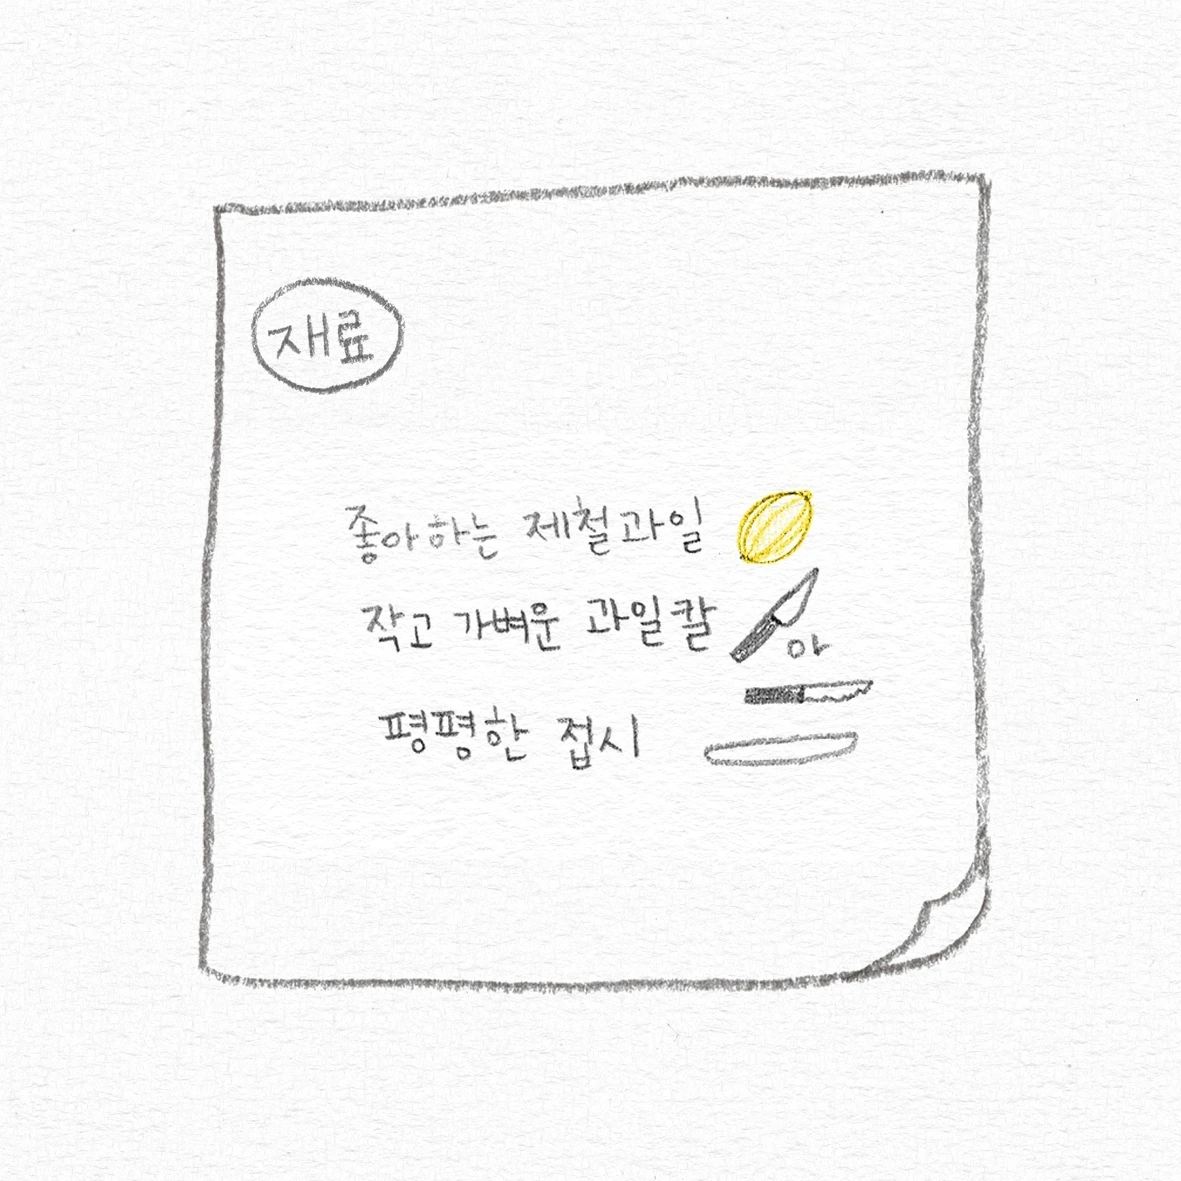 재료
좋아하는 제철과일
작고 가벼운 과일칼
아
평평한 접시